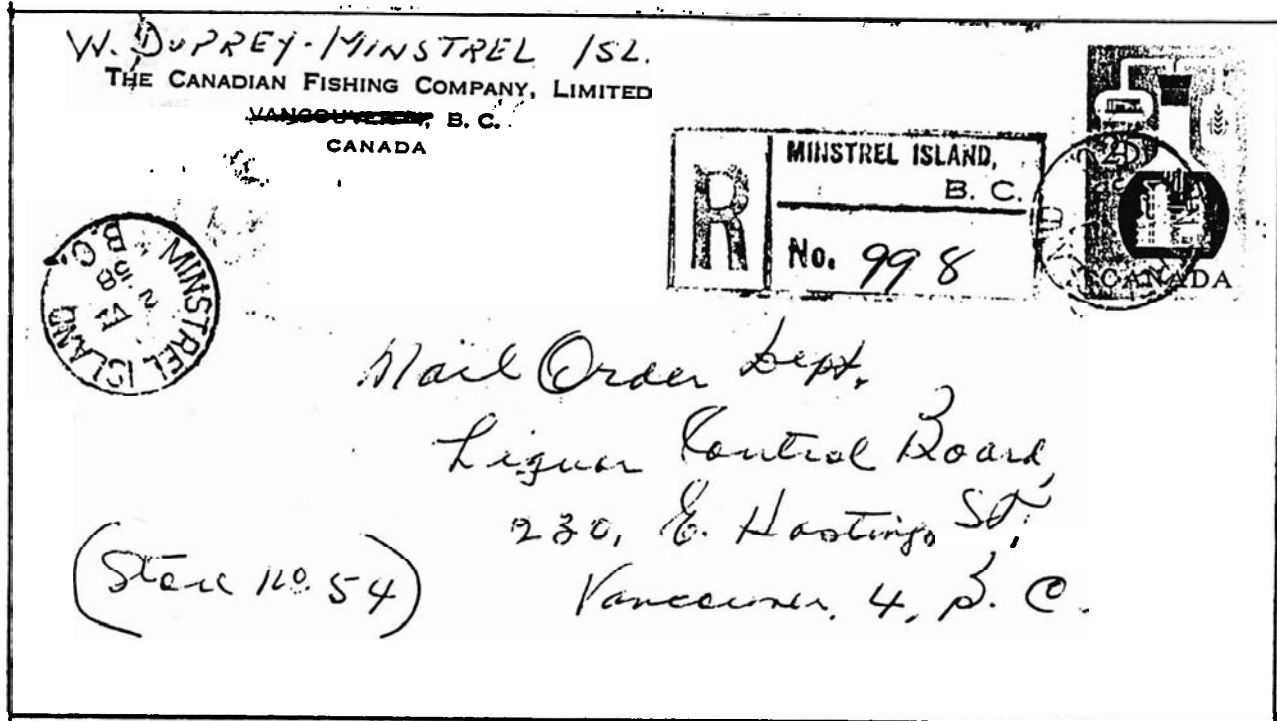 W. DUPREY-MINSTREL ISL.
THE CANADIAN FISHING COMPANY, LIMITED
VANCOUVER, B. C.
CANADA
R
MINSTREL ISLAND,
B. C.
No. 998
20
CANADA
MINSTREL ISLAND
B.C.
Mail Order Dept.
Liquor Control Board,
230, E. Hastings St,
(Store No. 54)
Vancouver, 4, B. C.